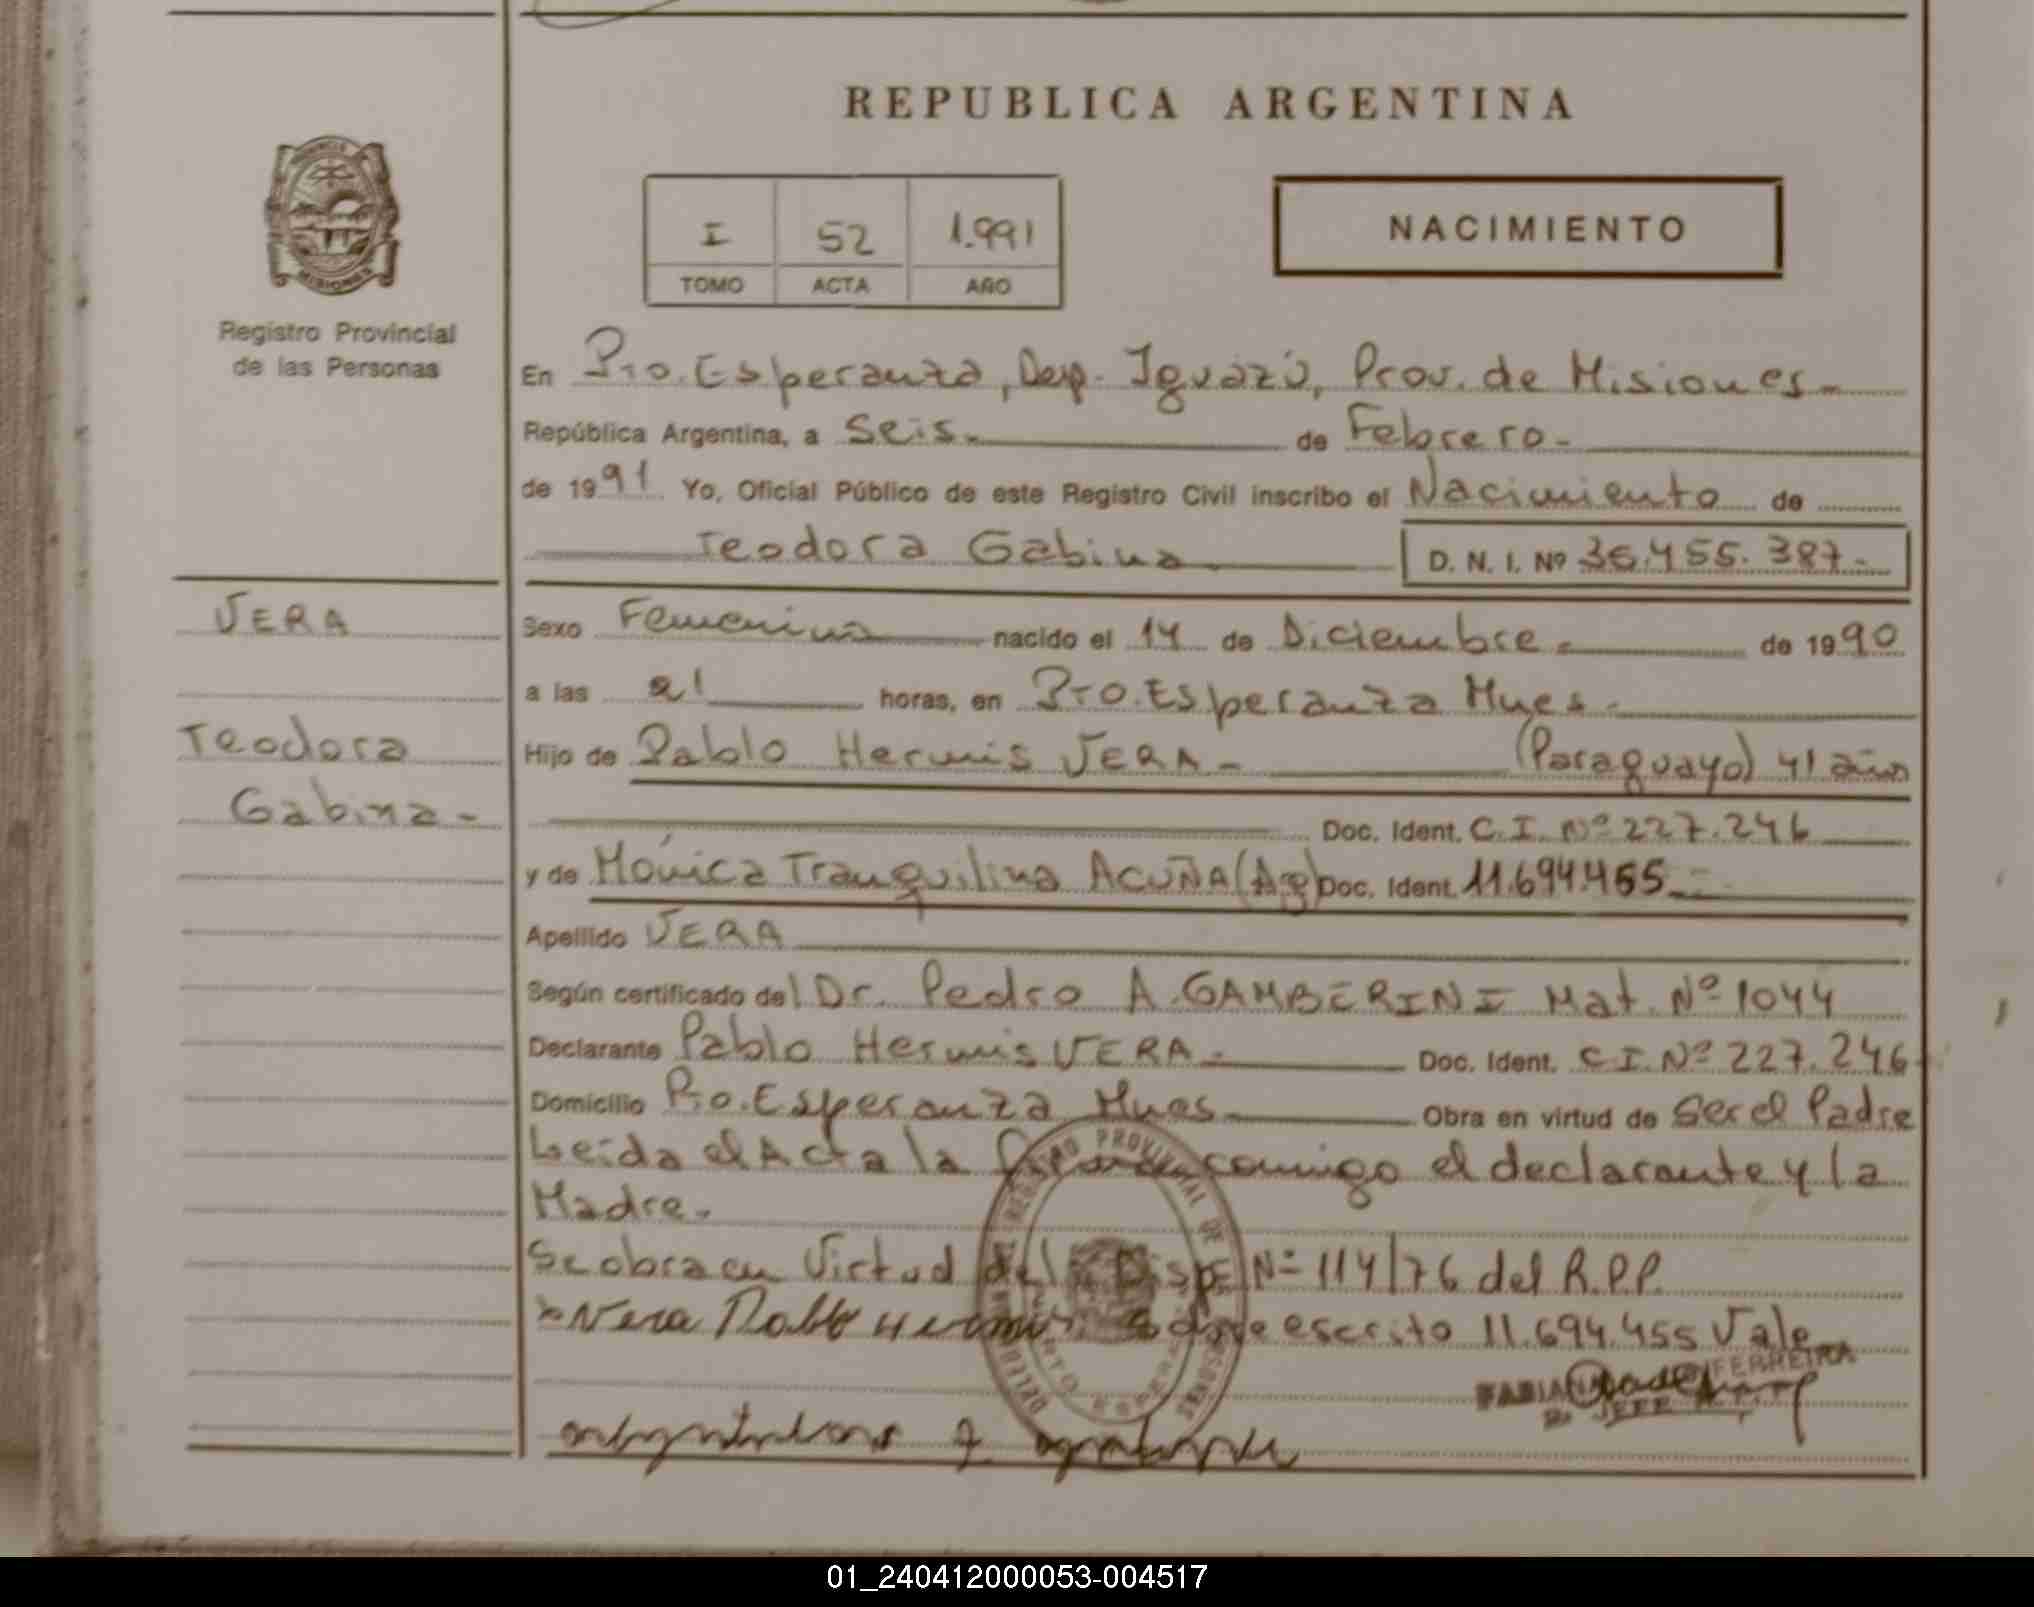 REPUBLICA ARGENTINA
I 52 1.991
TOMO ACTA AÑO
NACIMIENTO
PROVINCIA
MISIONES
Registro Provincial
de las Personas
En Pto. Esperanza, Dep. Iguazú, Prov. de Misiones.-
República Argentina, a Seis.- de Febrero.-
de 1991 Yo, Oficial Público de este Registro Civil inscribo el Nacimiento de
Teodora Gabina
D. N. I. Nº 36.455.387.-
VERA
Teodora
Gabina -
Sexo Femenino nacido el 14 de Diciembre.- de 1990
a las 21 horas, en Pto. Esperanza Mnes.-
Hijo de Pablo Hermis VERA - (Paraguayo) 41 años
Doc. Ident. C.I. Nº 227.246
y de Mónica Tranquilina ACUÑA (Arg) Doc. Ident. 11.694.455
Apellido VERA
Según certificado del Dr. Pedro A. GAMBERINI Mat. Nº 1044
Declarante Pablo Hermis VERA - Doc. Ident. C.I. Nº 227.246
Domicilio Pto. Esperanza Mnes. Obra en virtud de Ser el Padre
Leida el Acta la comigo el declarante y la
Madre.
Se obra en Virtud del Disp Nº 114/76 del R.P.P.
Vera Pablo Hermis Sobre escrito 11.694.455 Vale
REGISTRO PROVINCIAL DE LAS PERSONAS
FERREIRA
JEFE
01_240412000053-004517